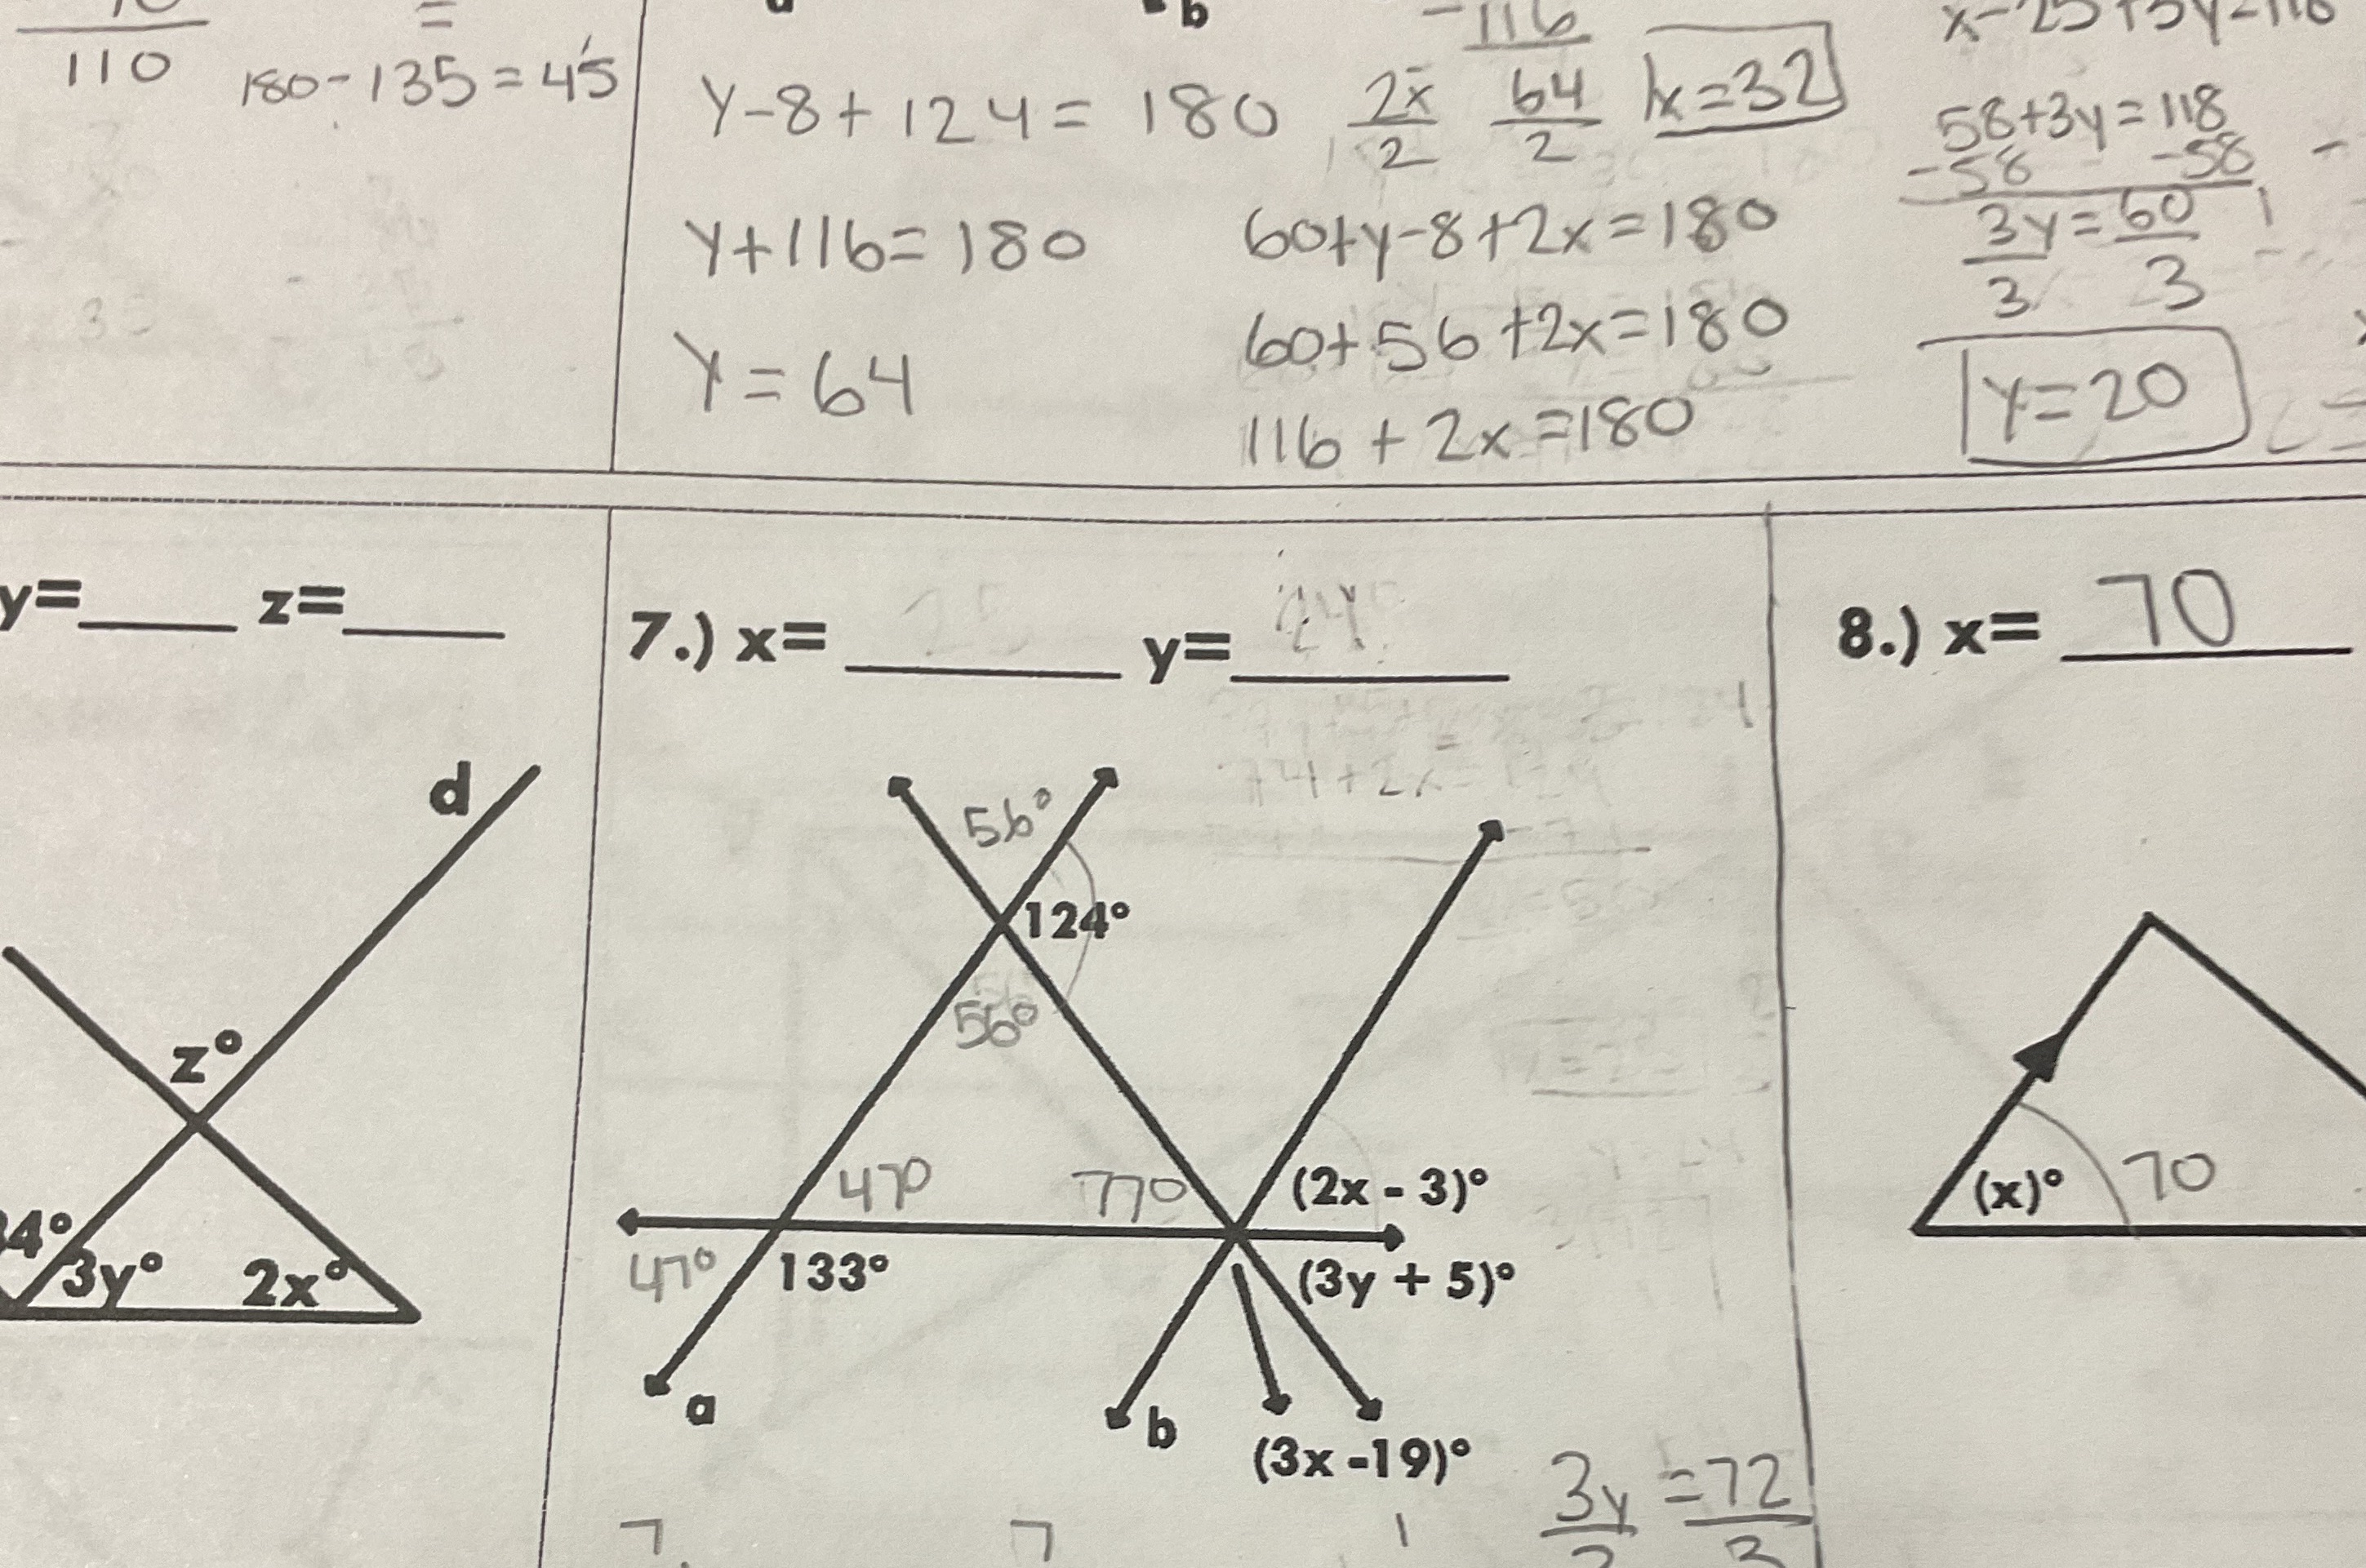 110
=
180-135=45
b
y-8+124=180
y+116=180
y=64
-116
2x 64
2 2
x=32
60+y-8+2x=180
60+56+2x=180
116+2x=180
58+3y=118
-58 -58
3y=60
3 3
y=20
y=___ z=___
d
z°
4°
3y°
2x°
7.) x= ___ y= ___
74+2x=124
56°
124°
56°
47°
77°
(2x - 3)°
47°
133°
(3y + 5)°
a
b
(3x -19)°
3y =72
3
8.) x= 70
(x)°
70